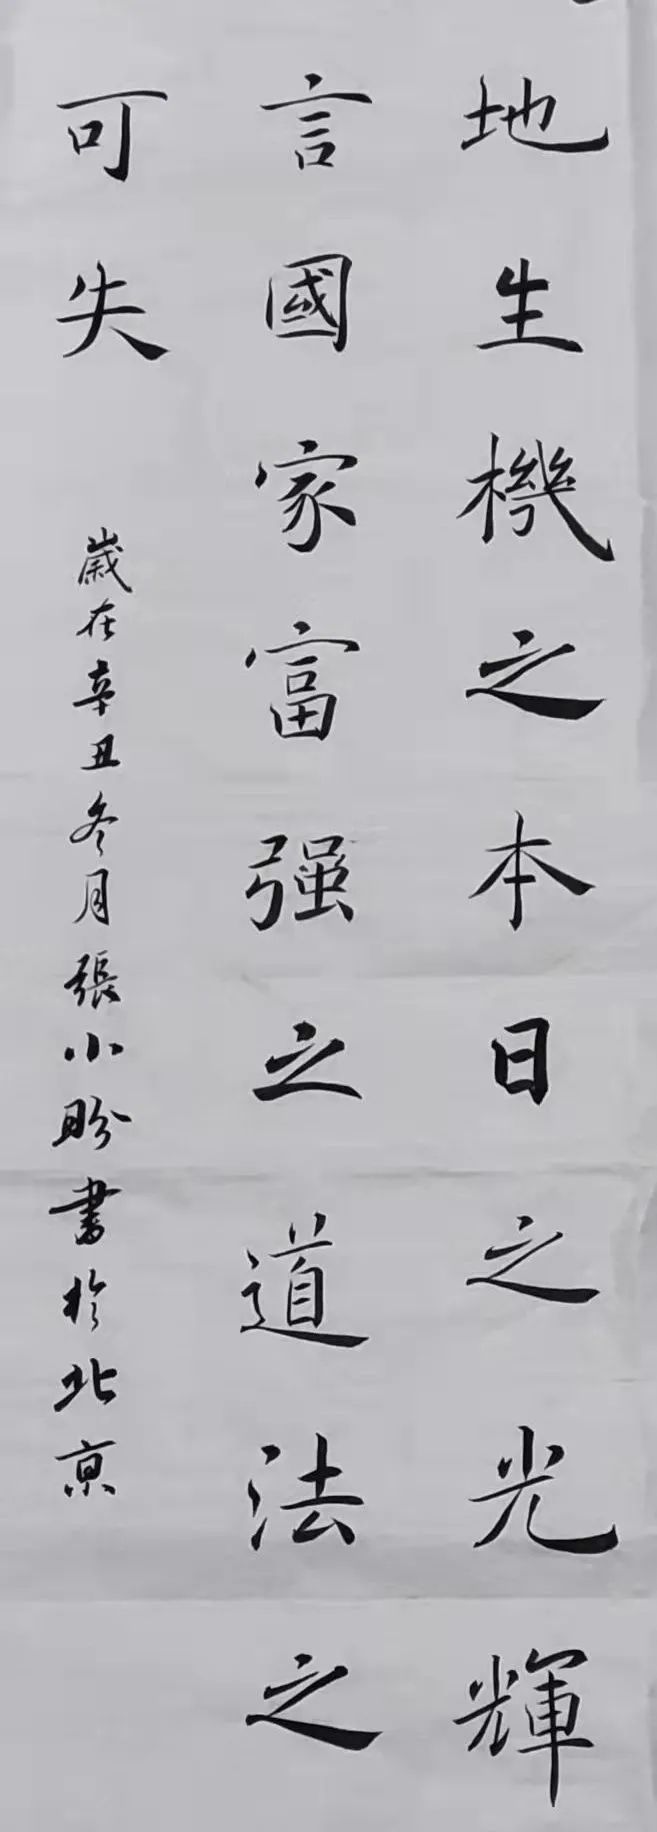 地生機之本日之光輝
言國家富强之道法之
可失
歲在辛丑冬月張小盼書於北京